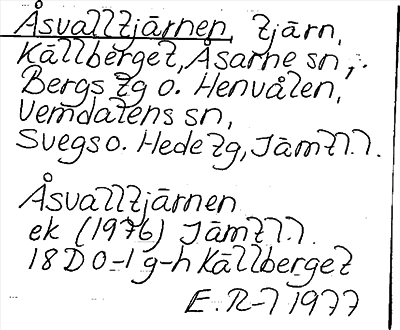 Åsvalltjärnen, tjärn,
Källberget, Åsarne sn,
Bergs tg o. Henvålen,
Vemdalens sn,
Svegs o. Hede tg, Jämtl.
Åsvalltjärnen
ek (1976) Jämtl.
18D 0-1 g-h Källberget
E. R-l 1977